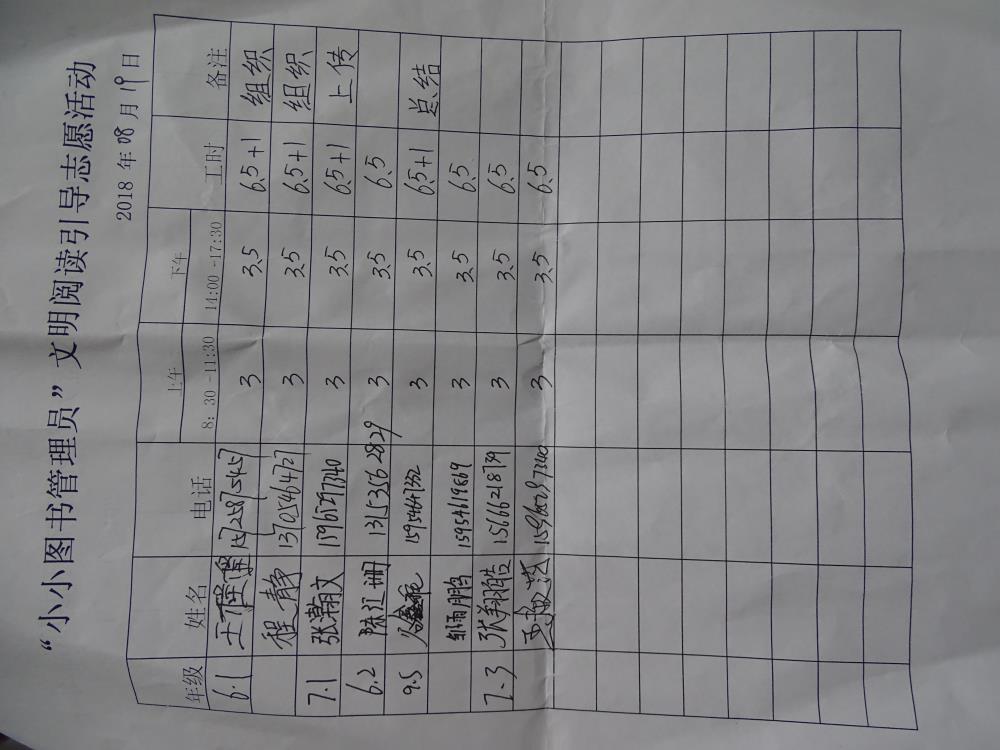 “小小图书管理员”文明阅读引导志愿活动
2018年08月19日
年级 姓名 电话 上午 下午 工时 备注
8：30-11:30 14:00-17:30
6.1 3 3.5 6.5+1 组织
程静 3 3.5 6.5+1 组织
7.1 张瀚文 15965297340 3 3.5 6.5+1 上传
6.2 陈江珊 13153562829 3 3.5 6.5
9.5 3 3.5 6.5+1 总结
邹雨鹏 15954619869 3 3.5 6.5
7.3 张翔皓 15666218739 3 3.5 6.5
15965297340 3 3.5 6.5